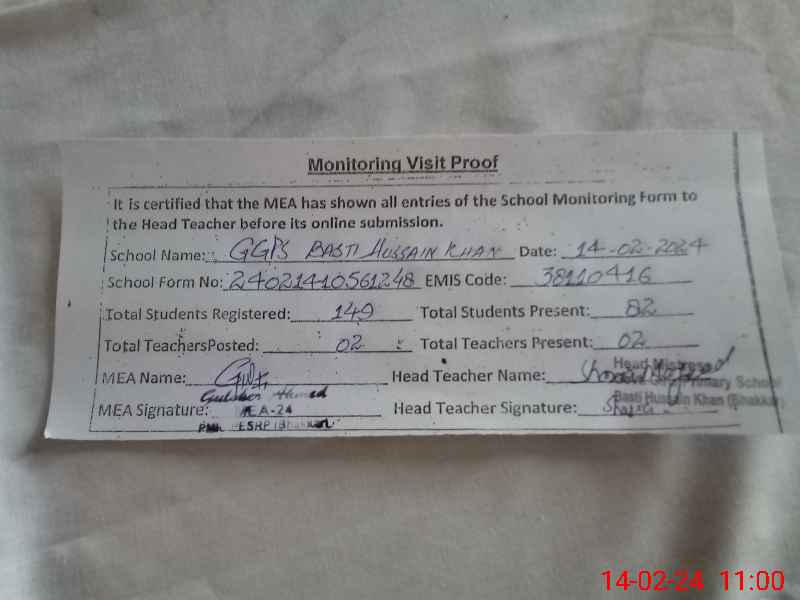 Monitoring Visit Proof
It is certified that the MEA has shown all entries of the School Monitoring Form to
the Head Teacher before its online submission.
School Name: GGPS BASTI HUSSAIN KHAN Date: 14-02-2024
School Form No: 24021410561248 EMIS Code: 38110416
Total Students Registered: 149 Total Students Present: 82
Total TeachersPosted: 02 Total Teachers Present: 02
MEA Name: Head Teacher Name:
Head Mistress
Primary School
MEA Signature: MEA-24 Head Teacher Signature:
Basti Hussain Khan (Bhakkar)
14-02-24 11:00